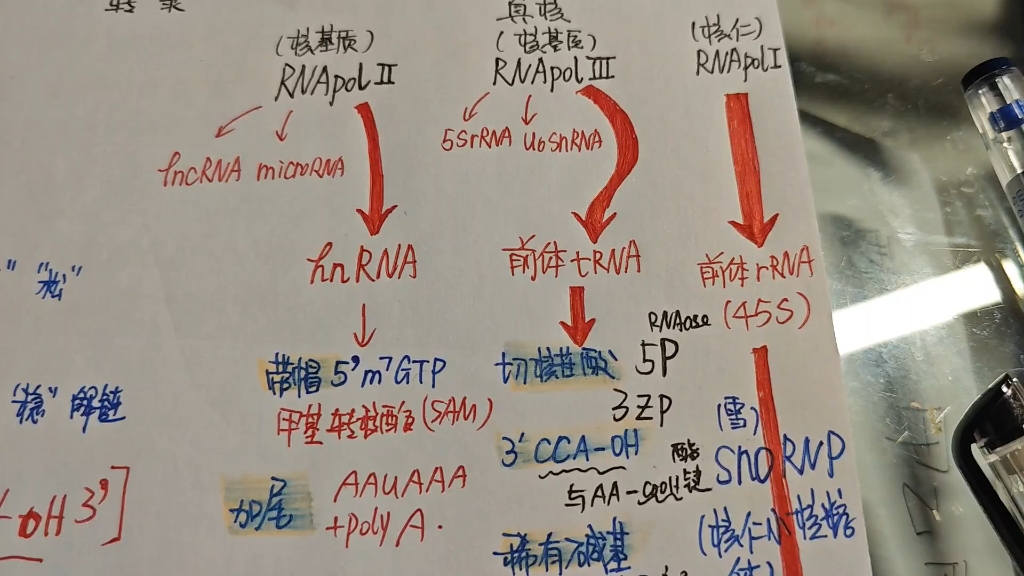 转录
真核
(核基质)
RNApol II
lncRNA microRNA
hnRNA
带帽 5'm⁷GTP
甲基转移酶(SAM)
加尾
AAUAAA
+polyA.
(核基质)
RNApol III
5SrRNA U6SnRNA
前体tRNA
切核苷酸
RNAase
5P
3ZP
3'CCA-OH
酯键
与AA-
稀有碱基
(核仁)
RNApol I
前体rRNA
(45S)
(雪)
SnoRNP
(核仁小核糖
体)
"松"
"稳"解链
OH 3']